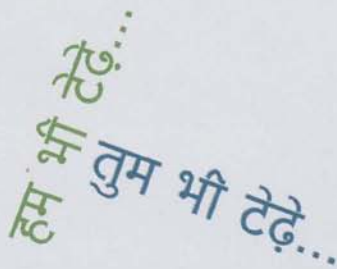 हम भी टेढ़े...
तुम भी टेढ़े...